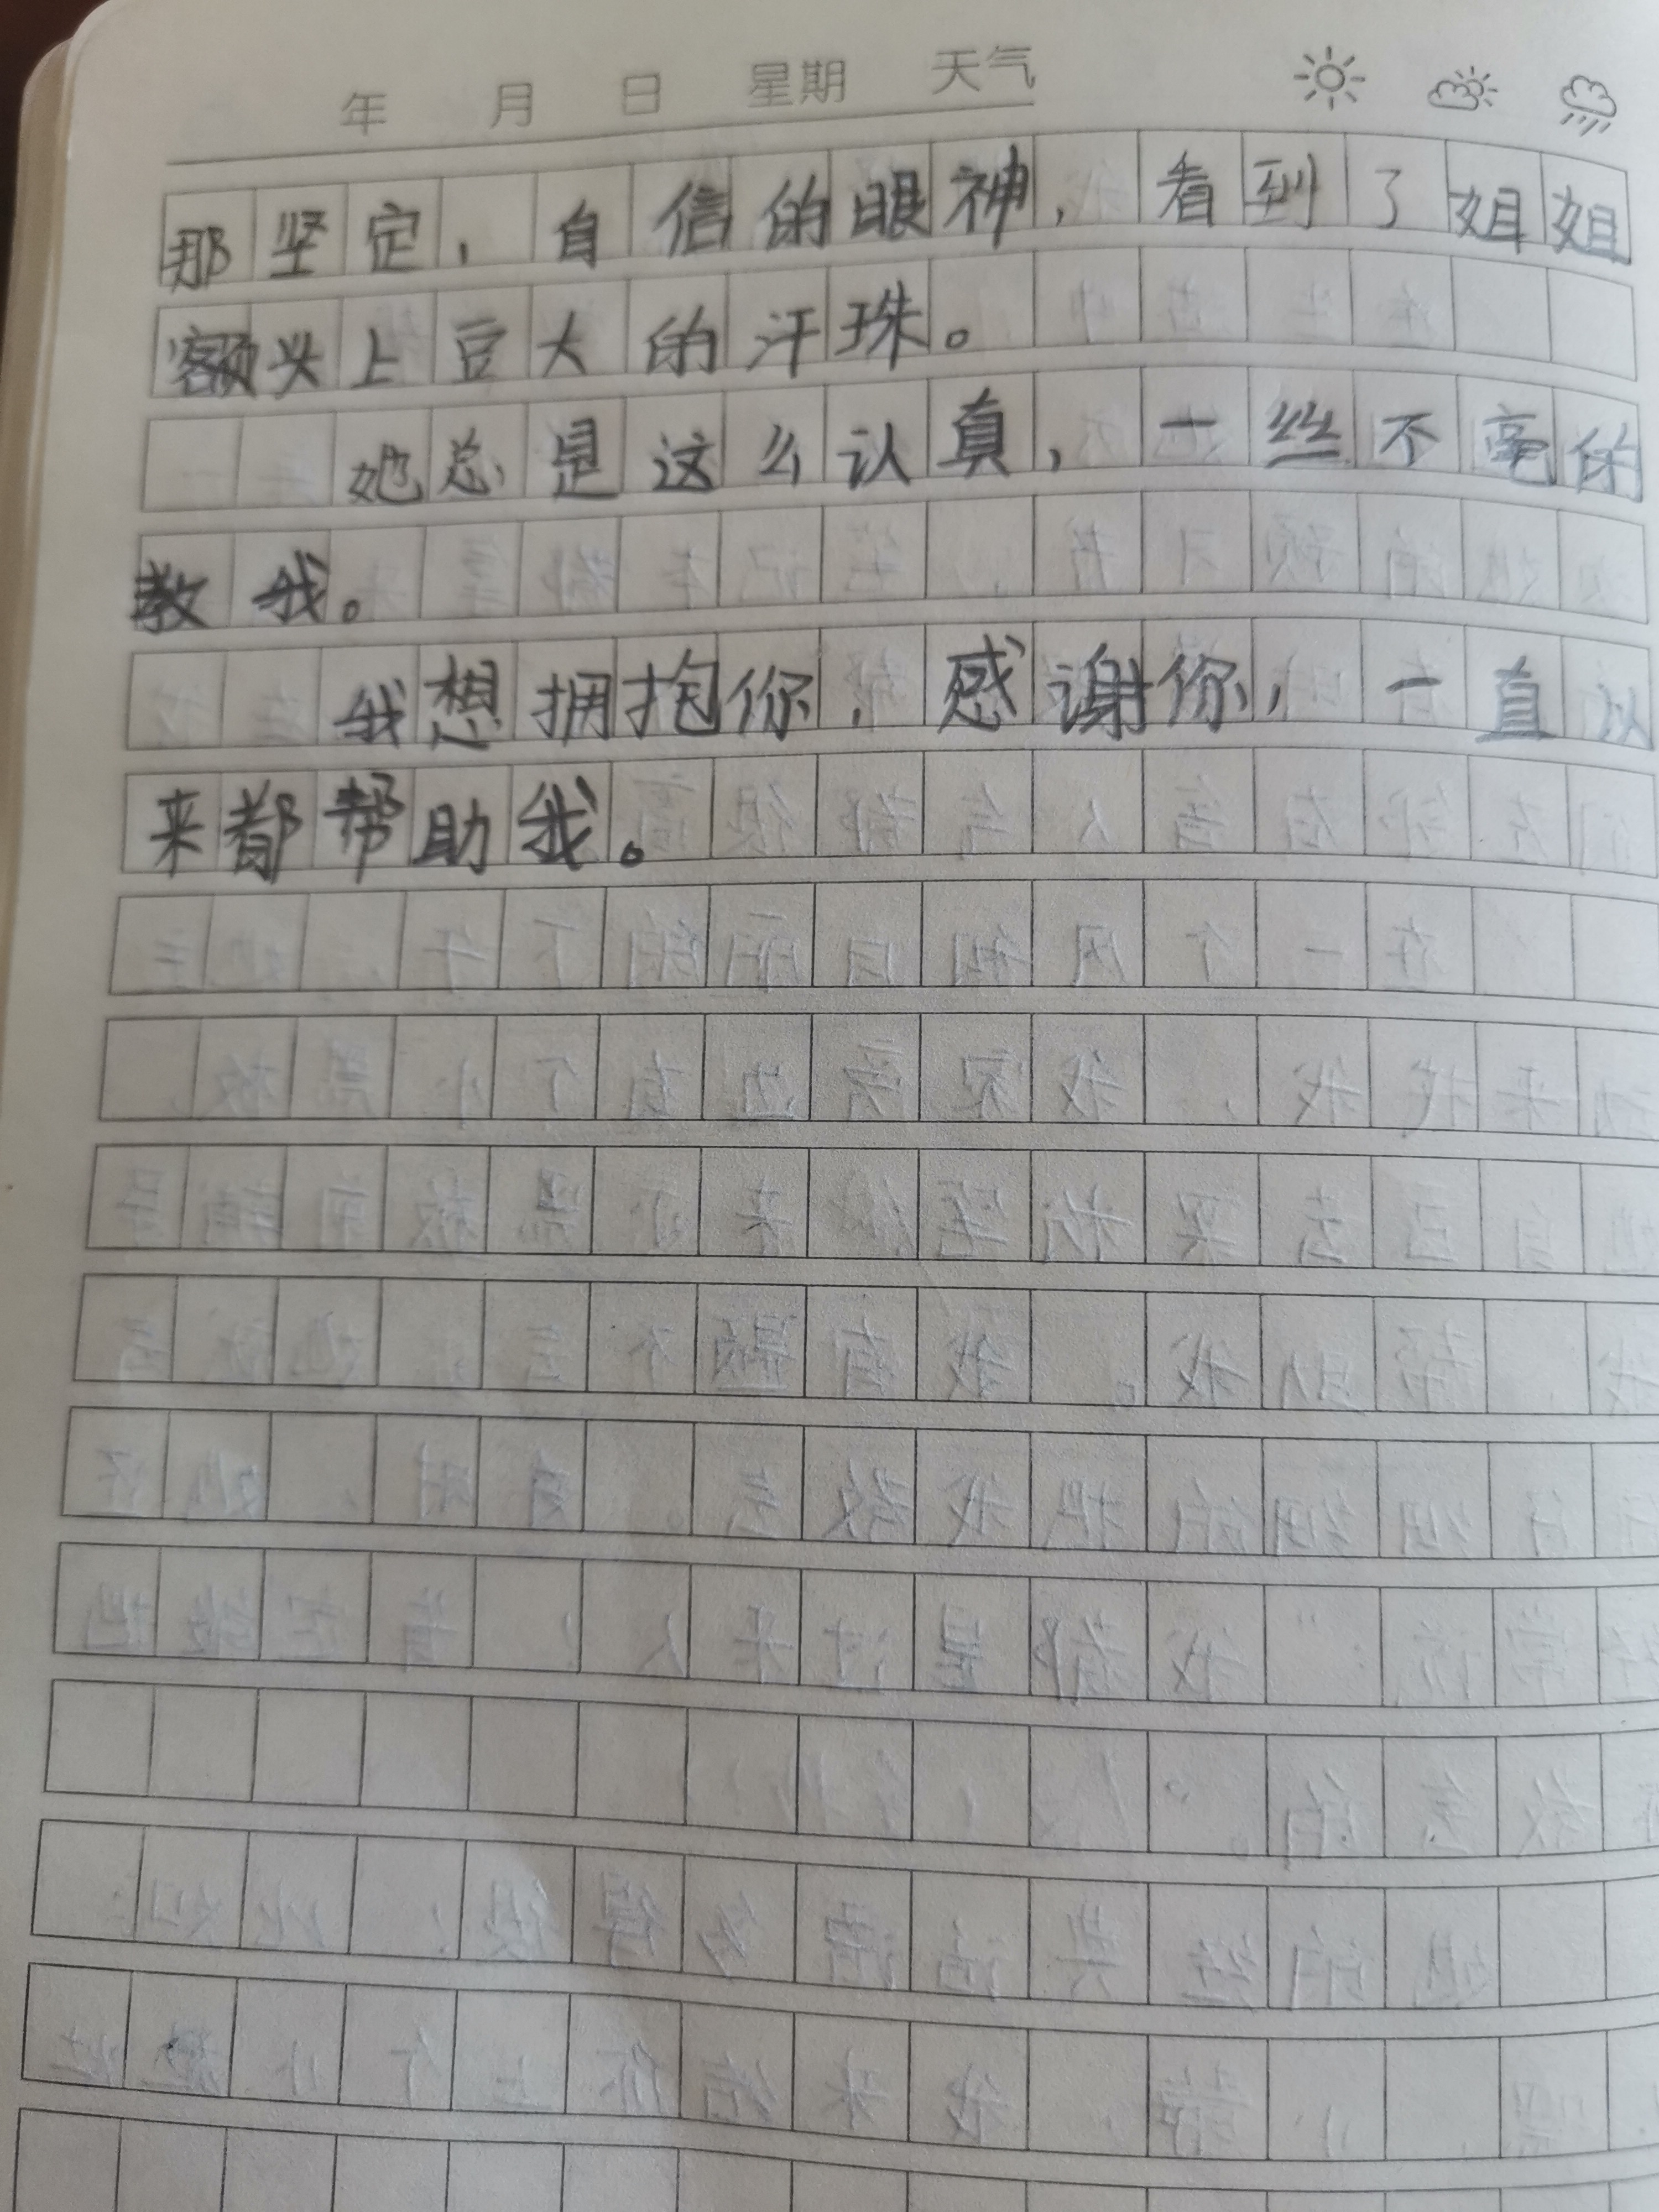 年 月 日 星期 天气
那坚定，自信的眼神，看到了姐姐
额头上豆大的汗珠。
她总是这么认真，一丝不毫的
教我。
我想拥抱你，感谢你，一直以
来都帮助我。